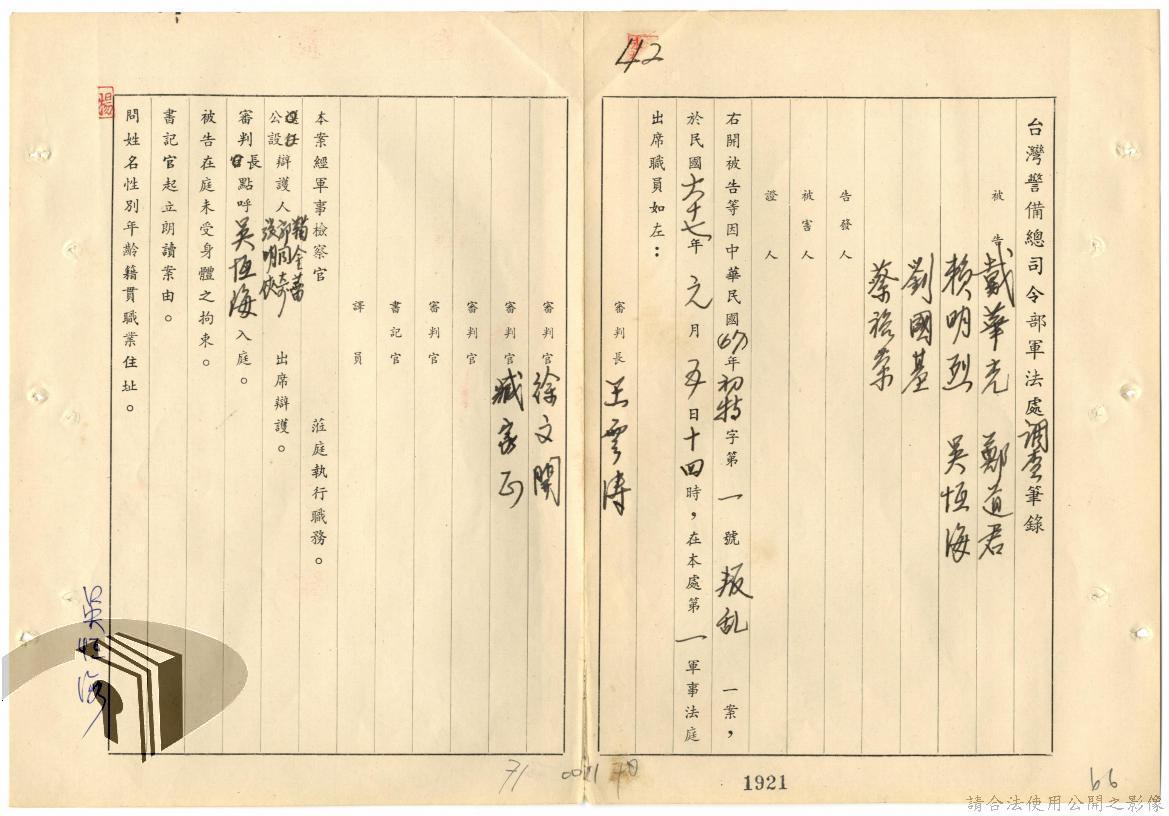 台灣警備總司令部軍法處調查筆錄
被告 戴華光 鄭道君
賴明烈 吳恒海
劉國基
蔡裕榮
告發人
被害人
證人
右開被告等因中華民國(67)年初特字第一號叛乱一案，
於民國六十七年元月五日十四時，在本處第一軍事法庭
出席職員如左：
審判長 王雲濤
42
審判官 徐文開
審判官 臧家正
審判官
審判官
書記官
譯員
本案經軍事檢察官 蒞庭執行職務。
選任
公設辯護人 郭同奇 張明俠 出席辯護。
審判長點呼吳恒海入庭。
被告在庭未受身體之拘束。
書記官起立朗讀案由。
問姓名性別年齡籍貫職業住址。
楊
吳恒海
71
0011
70
1921
66
請合法使用公開之影像